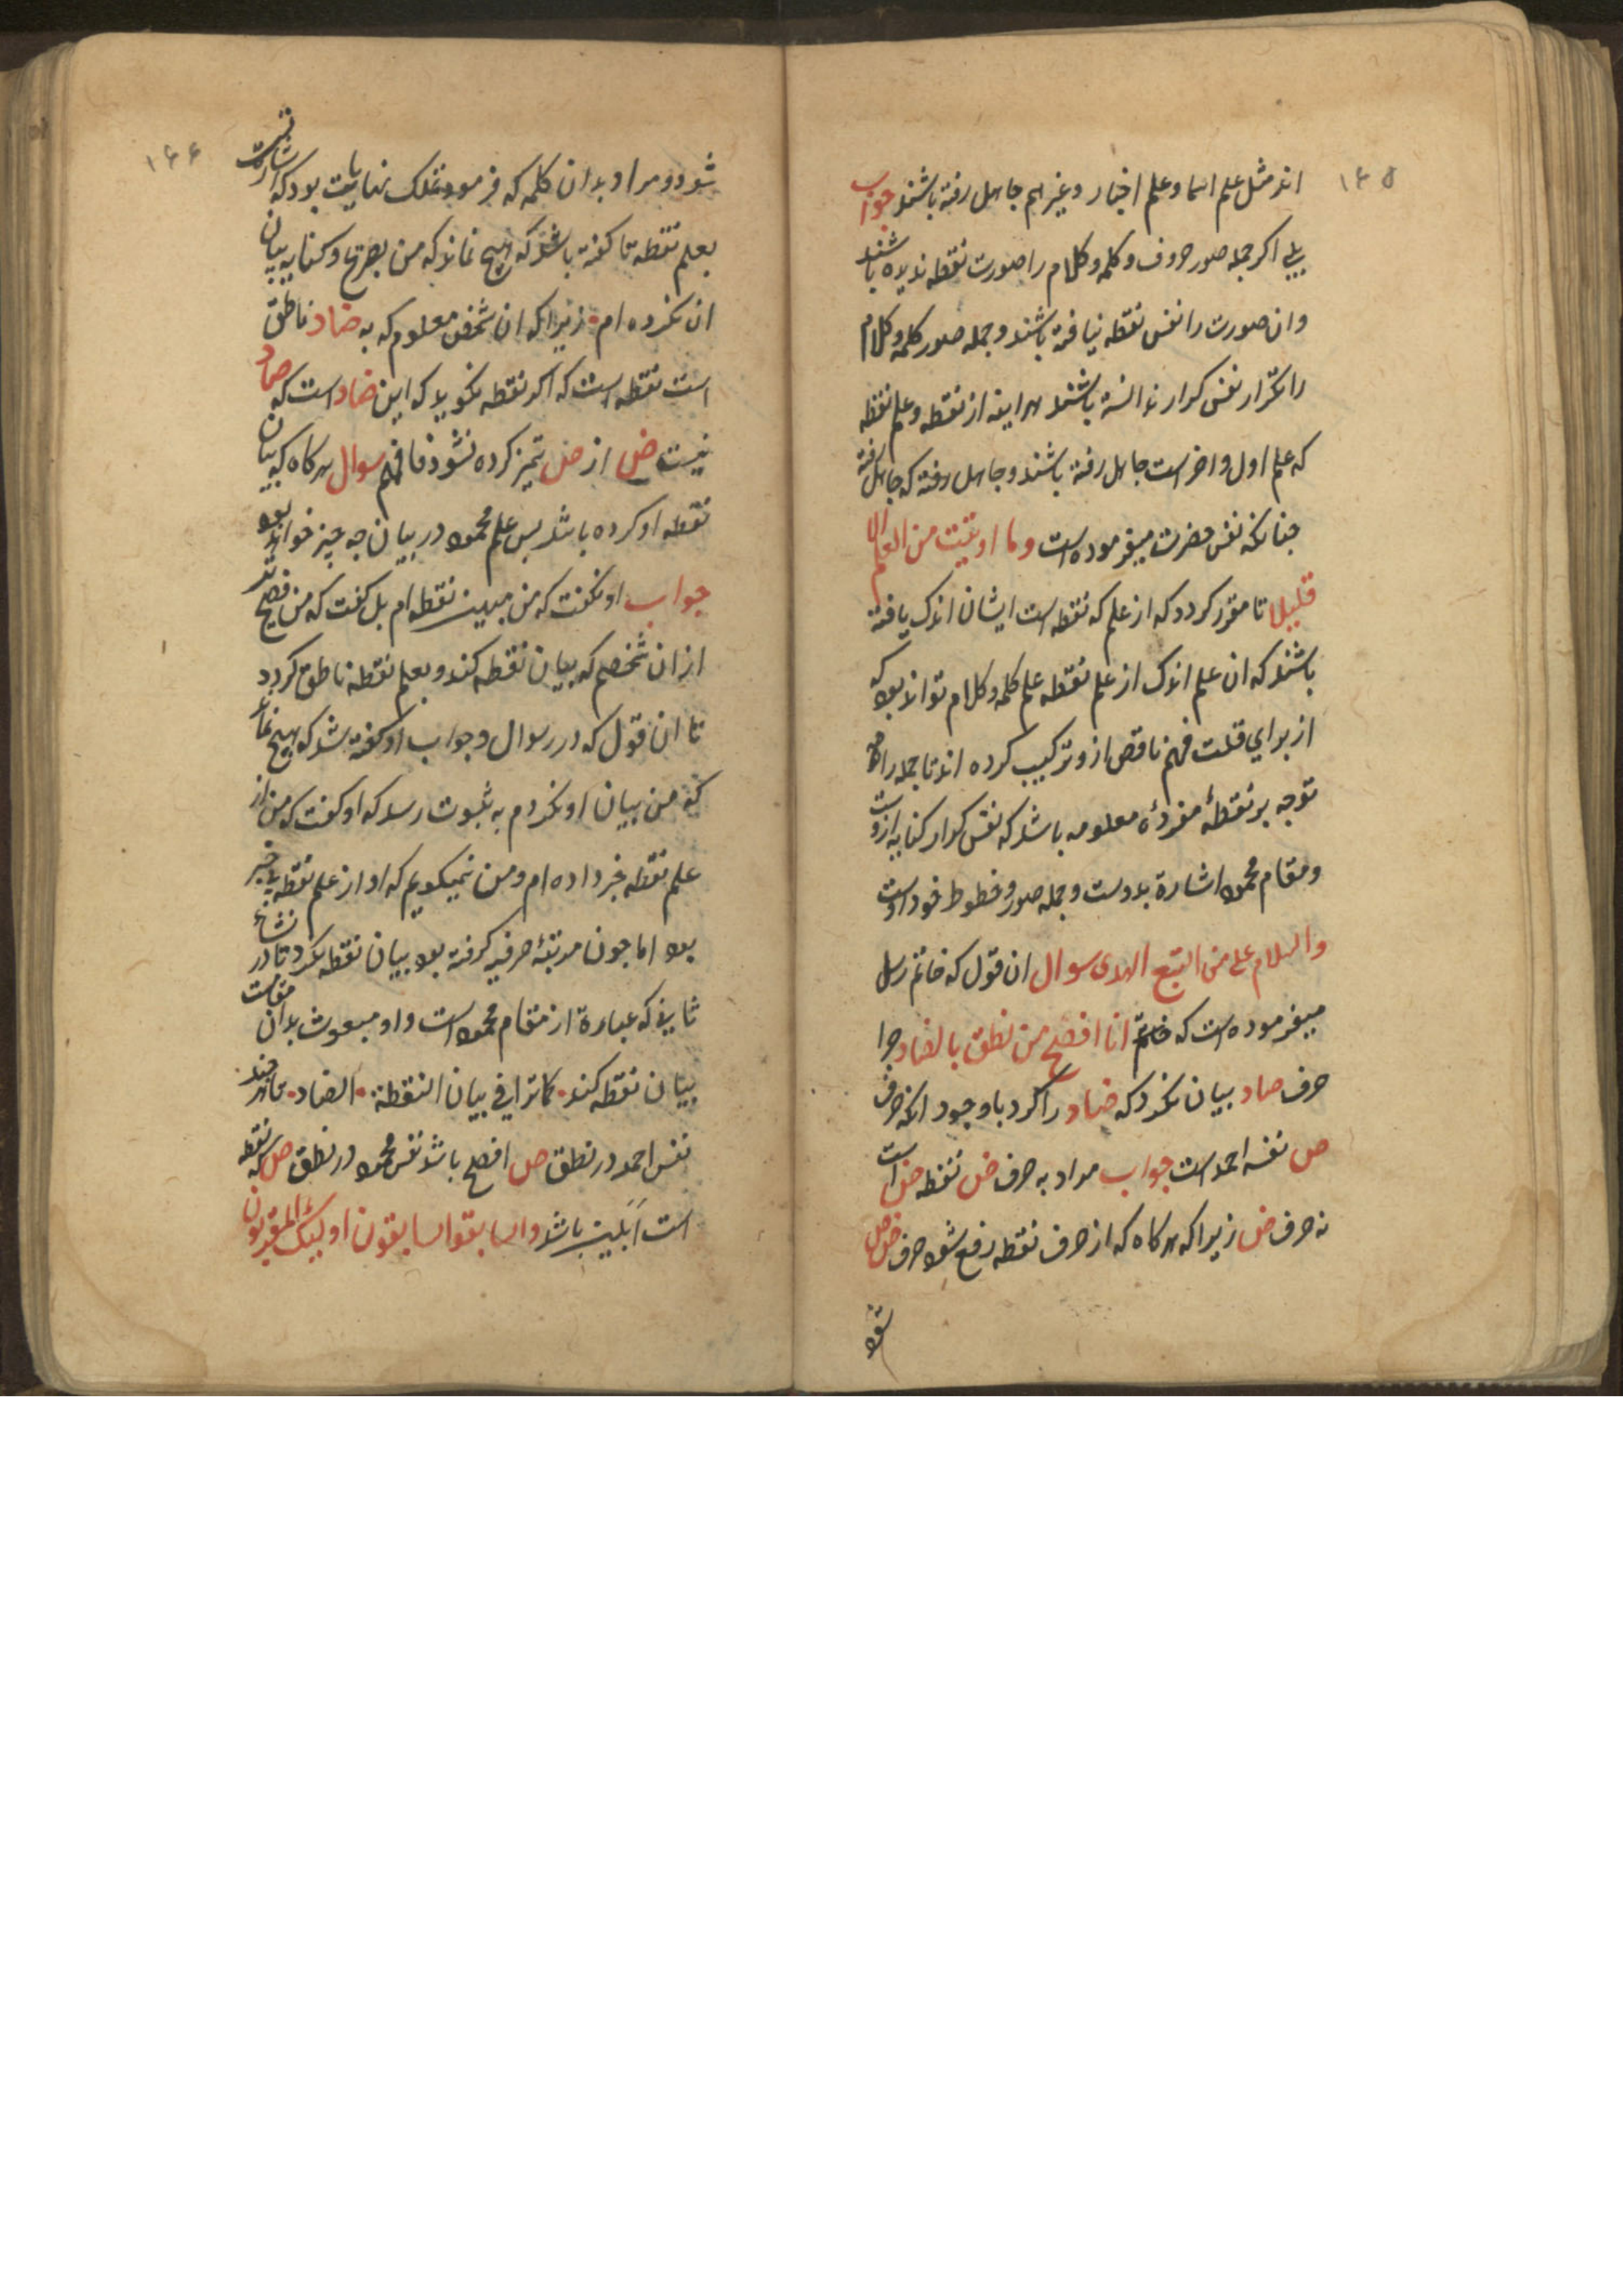 ۱۶۵
اند مثل علم اسما و علم اخبار و غیرهم جاهل رفته باشند جواب
بلی اکر جمله صور حروف و کلمه و کلام را صورت نقطه ندیده باشند
و ان صورت را نفس نقطه نیافته باشند و جمله صور کلمه و کلام
را تکرار نفس کرار ندانسته باشند هراینه از نقطه و علم نقطه
که علم اول و اخر است جاهل رفته باشند و جاهل رفته که جاهل رفته
جنانکه نفس حضرت میفرموده است وما اوتیت من العلم الا
قلیلا تا مقرر کردد که از علم که نقطه است ایشان اندک یافته
باشند که ان علم اندک از علم نقطه علم کلمه و کلام تواند بود که
از برای قلت فهم ناقص ازو ترکیب کرده اند تا جمله را
توجه بر نقطهٔ مفردهٔ معلومه باشد که نفس کرار کنایه ازوست
و مقام محمود اشارة بدوست و جمله صور و خطوط خود اوست
والسلام علی من اتبع الهدی سوال ان قول که خاتم رسل
میفرموده است که انا افصح من نطق بالضاد جرا
حرف صاد بیان نکرد که ضاد را کرد باوجود انکه حرف
ص نفسه احمد است جواب مراد به حرف ض نقطه ض است
نه حرف ض زیرا که هرکاه که از حرف نقطه رفع شود حرف ض ص
شود
۱۶۶
شود و مراد بدان کلمه که فرمود بنهایت بود که اشارت
بعلم نقطه تا کفته باشد که هیچ نماند که من بصریح و کنایه بیان
ان نکرده ام زیرا که ان شخص معلوم که به ضاد ناطق
است نقطه است که اکر نقطه نکوید که این ضاد است که صاد
نیست ض از ص تمیز کرده نشود فافهم سوال هرکاه که بیان
نقطه او کرده باشد بس علم محمود در بیان جه جیز خواهد بود
جواب او نکفت که من مبین نقطه ام بل کفت که من فصیح تر
از ان شخصم که بیان نقطه کند و بعلم نقطه ناطق کردد
تا ان قول که در سوال و جواب او کفته شد که هیچ نماند
که من بیان او نکردم به ثبوت رسد که او کفت که من از
علم نقطه خبر داده ام و من نمیکویم که او از علم نقطه بیخبر
بود اما جون مرتبهٔ حرفیه کرفته بود بیان نقطه نکرد تا در نشاء
ثانی که عبارة از مقام محمود است و او مبعوث بدان مقامست
بیان نقطه کند کما تری فی بیان النقطة الضاد هر جند
نفس احمد در نطق ص افصح باشد نفس محمود در نطق ص که نقطه
است ابلیت باشد والسابقوا السابقون اولیک المقربون